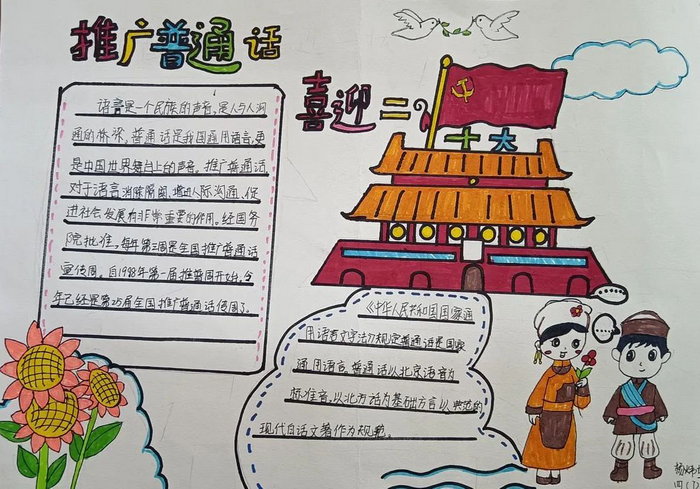 推广普通话
喜迎二十大
语言是一个民族的声音,是人与人沟
通的桥梁,普通话是我国通用语言,更
是中国世界舞台上的声音。推广普通话
对于语言消除隔阂、增进人际沟通、促
进社会发展有非常重要的作用。经国务
院批准,每年第三周是全国推广普通话
宣传周。自1998年第一届推普周开始,今
年已经是第25届全国推广普通话传周了。
《中华人民共和国国家通
用语言文字法》规定普通话是国家
通用语言。普通话以北京语音为
标准音,以北方话为基础方言以典范的
现代白话文著作为规范。